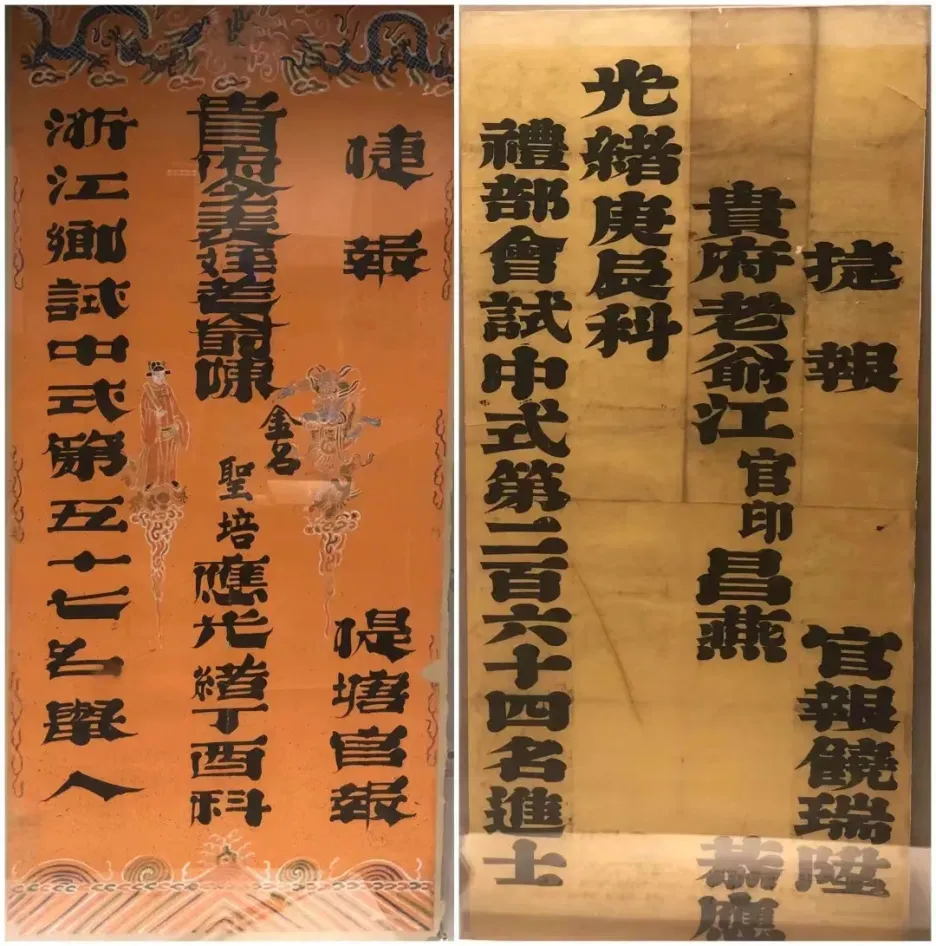 捷報 提塘官報
貴府令老爺陳 金名 聖培 應光緒丁酉科
浙江鄉試中式第五十七名舉人
捷報 官報饒瑞陞
貴府老爺江官印昌燕 恭應
光緒庚辰科
禮部會試中式第二百六十四名進士